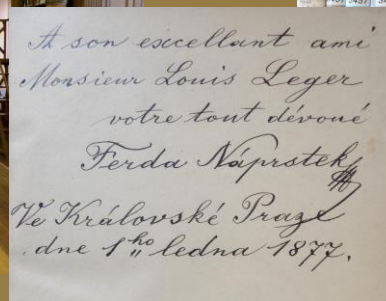 A son excellant ami
Monsieur Louis Leger
votre tout dévoué
Ferda Náprstek
Ve Královské Praze
dne 1ho ledna 1877.